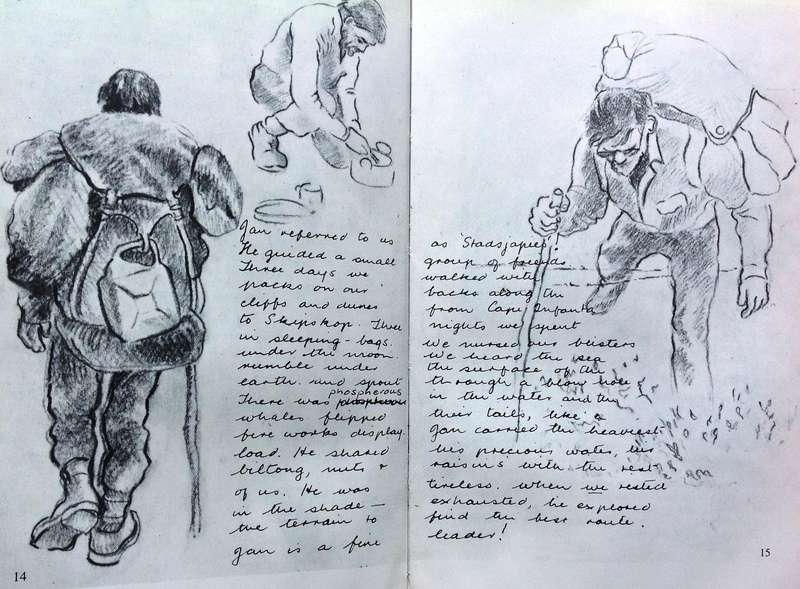 Jan referred to us as 'Stadsjapies'!
He guided a small group of friends
Three days we walked with
packs on our backs along the
cliffs and dunes from Cape Infanta
to Skipskop. Three nights we spent
in sleeping-bags
under the moon. We nursed our blisters
We heard the sea
rumble under the surface of the
earth. and spout through a 'blow hole'
There was phosphorous in the water and the
whales flipped their tails, like a
fire works display. Jan carried the heaviest
load. He shared his precious water, his
biltong, nuts & raisins with the rest
of us. He was tireless. When we rested
in the shade — exhausted, he explored
the terrain to find the best route.
Jan is a fine leader!
14
15